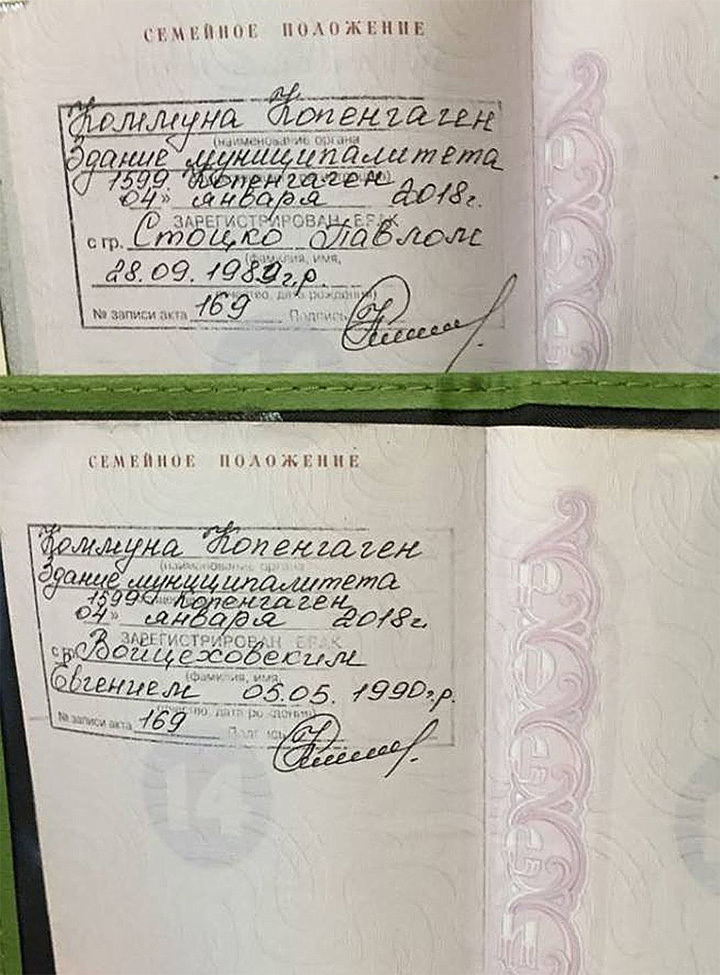 СЕМЕЙНОЕ ПОЛОЖЕНИЕ
Коммуна Копенгаген
(наименование органа
Здание муниципалитета
1599 Копенгаген
04» января 2018г.
ЗАРЕГИСТРИРОВАН БРАК
с гр. Стоцко Павлом
(фамилия, имя,
28.09.1989г.р.
отчество, дата рождения)
№ записи акта 169 Подпись
СЕМЕЙНОЕ ПОЛОЖЕНИЕ
Коммуна Копенгаген
(наименование органа
Здание муниципалитета
1599 Копенгаген
04» января 2018г.
ЗАРЕГИСТРИРОВАН БРАК
с гр. Войцеховским
(фамилия, имя,
Евгением 05.05.1990г.р.
отчество, дата рождения)
№ записи акта 169 Подпись
14